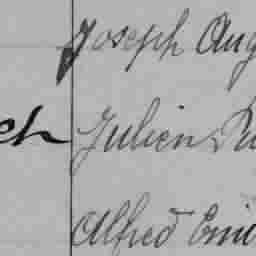 Joseph Aug
ch Julien
Alfred Emi